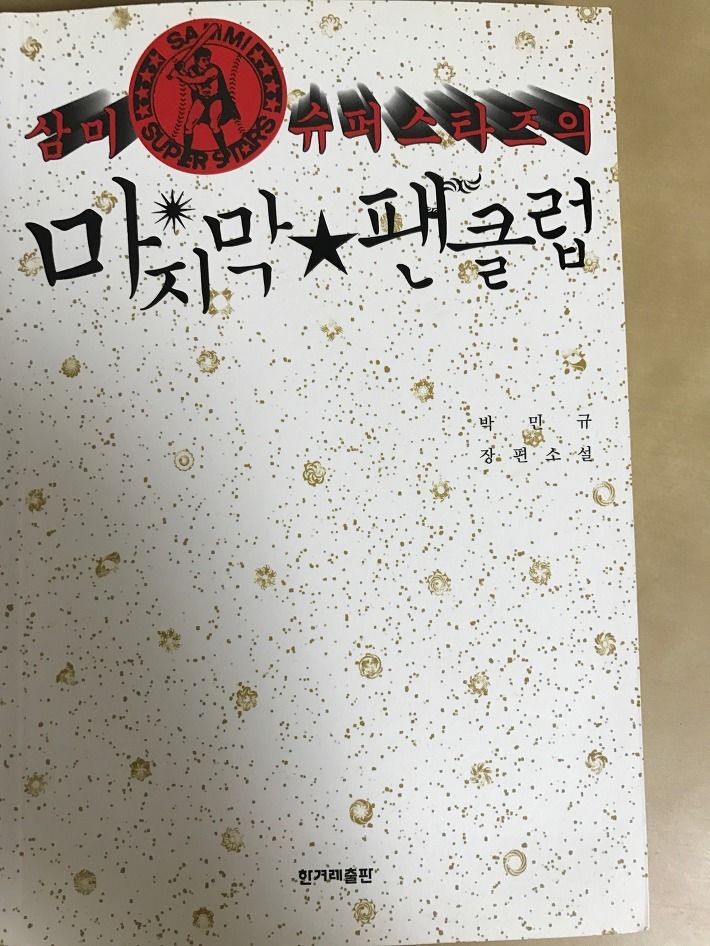 SAMMI
SUPER STARS
삼미 슈퍼스타즈의
마지막★팬클럽
박민규
장편소설
한겨레출판